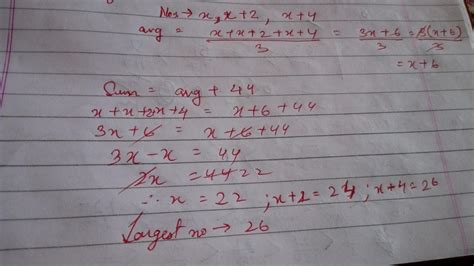 Nos → x, x+2, x+4
avg = x+x+2+x+4/3 = 3x+6/3 = 3(x+6)/3
= x+6
Sum = avg + 44
x+x+2x+4 = x+6+44
3x+6 = x+6+44
3x-x = 44
2x = 44 22
∴ x = 22 ; x+2 = 24 ; x+4 = 26
Largest no → 26